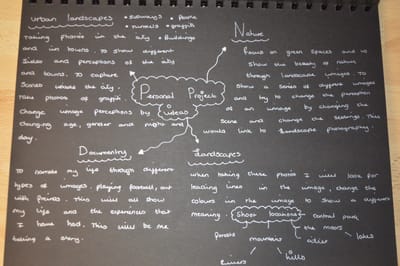 Urban landscapes • Subways • People
• tunnels • graffiti
Taking photos in the city • Buildings
and in towns. To show different
sides and perceptions of the city
and towns. To capture
scenes within the city.
Take photos of graffiti
Change image perceptions by
Changing age, gender and
day.
Nature
Focus on green spaces and to
show the beauty of nature
through landscape images. To
show a series of different images
and try to change the perception
of an image by changing the
scene and change the settings. This
would link to landscape photography.
Personal Project
ideas
Documentry
To narrate my life through different
types of images, playing football, out
with friends. This will all show
my life and the experiences that
I have had. This will be me
telling a story.
Landscapes
When taking these photos I will look for
leading lines in the image, change the
colours in the image to show a different
meaning.
Short locations
central park
the moors
forests
mountains
lakes
rivers
hills